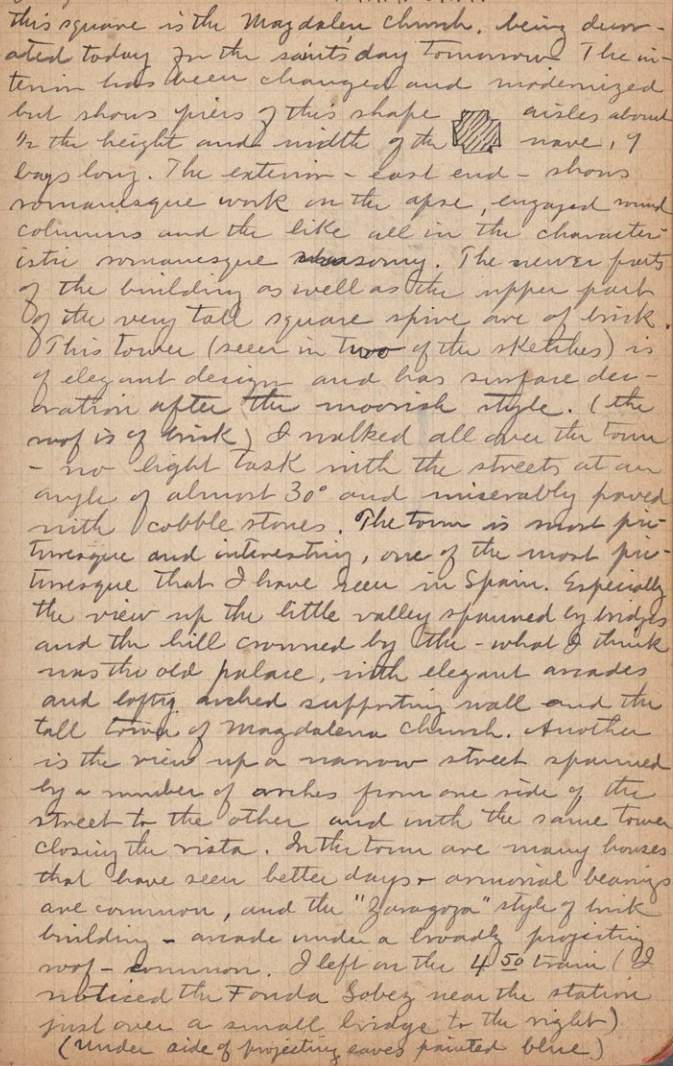 this square is the Magdalen church, being decor-
ated today for the saints day tomorrow. The in-
terior has been changed and modernized
but shows piers of this shape aisles about
1/2 the height and width of the nave, 9
bays long. The exterior - east end - shows
romanesque work on the apse, engaged round
columns and the like all in the character-
istic romanesque masonry. The newer parts
of the building as well as the upper part
of the very tall square spire are of brick.
This tower (seen in two of the sketches) is
of elegant design and has surface dec-
oration after the moorish style. (the
roof is of brick) I walked all over the town
- no light task with the streets at an
angle of almost 30° and miserably paved
with cobble stones. The town is most pic-
turesque and interesting, one of the most pic-
turesque that I have seen in Spain. Especially
the view up the little valley spanned by bridges
and the hill crowned by the - what I think
was the old palace, with elegant arcades
and lofty arched supporting wall and the
tall tower of Magdalena church. Another
is the view up a narrow street spanned
by a number of arches from one side of the
street to the other and with the same tower
closing the vista. In the town are many houses
that have seen better days & armorial bearings
are common, and the "Zaragoza" style of brick
building - arcade under a broadly projecting
roof - common. I left on the 4 50 train (I
noticed the Fonda Sobez near the station
just over a small bridge to the right)
(Under side of projecting eaves painted blue)